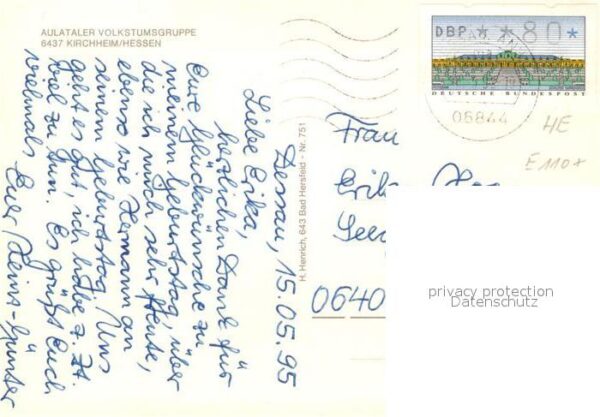 AULATALER VOLKSTUMSGRUPPE
6437 KIRCHHEIM/HESSEN
Dessau, 15.05.95
Liebe Erika,
herzlichen Dank für
Eure Glückwünsche zu
meinem Geburtstag, über
die ich mich sehr freute,
ebenso wie Hermann an
seinem Geburtstag. Uns
geht es gut, ich habe z. Zt.
viel zu tun. Es grüßt Euch
vielmals Euer Heinz-Günter
H. Henrich, 643 Bad Hersfeld - Nr. 751
DBP * * 80 *
DEUTSCHE BUNDESPOST
06844
HE
E 110
Frau
Erik
See
0640
privacy protection
Datenschutz